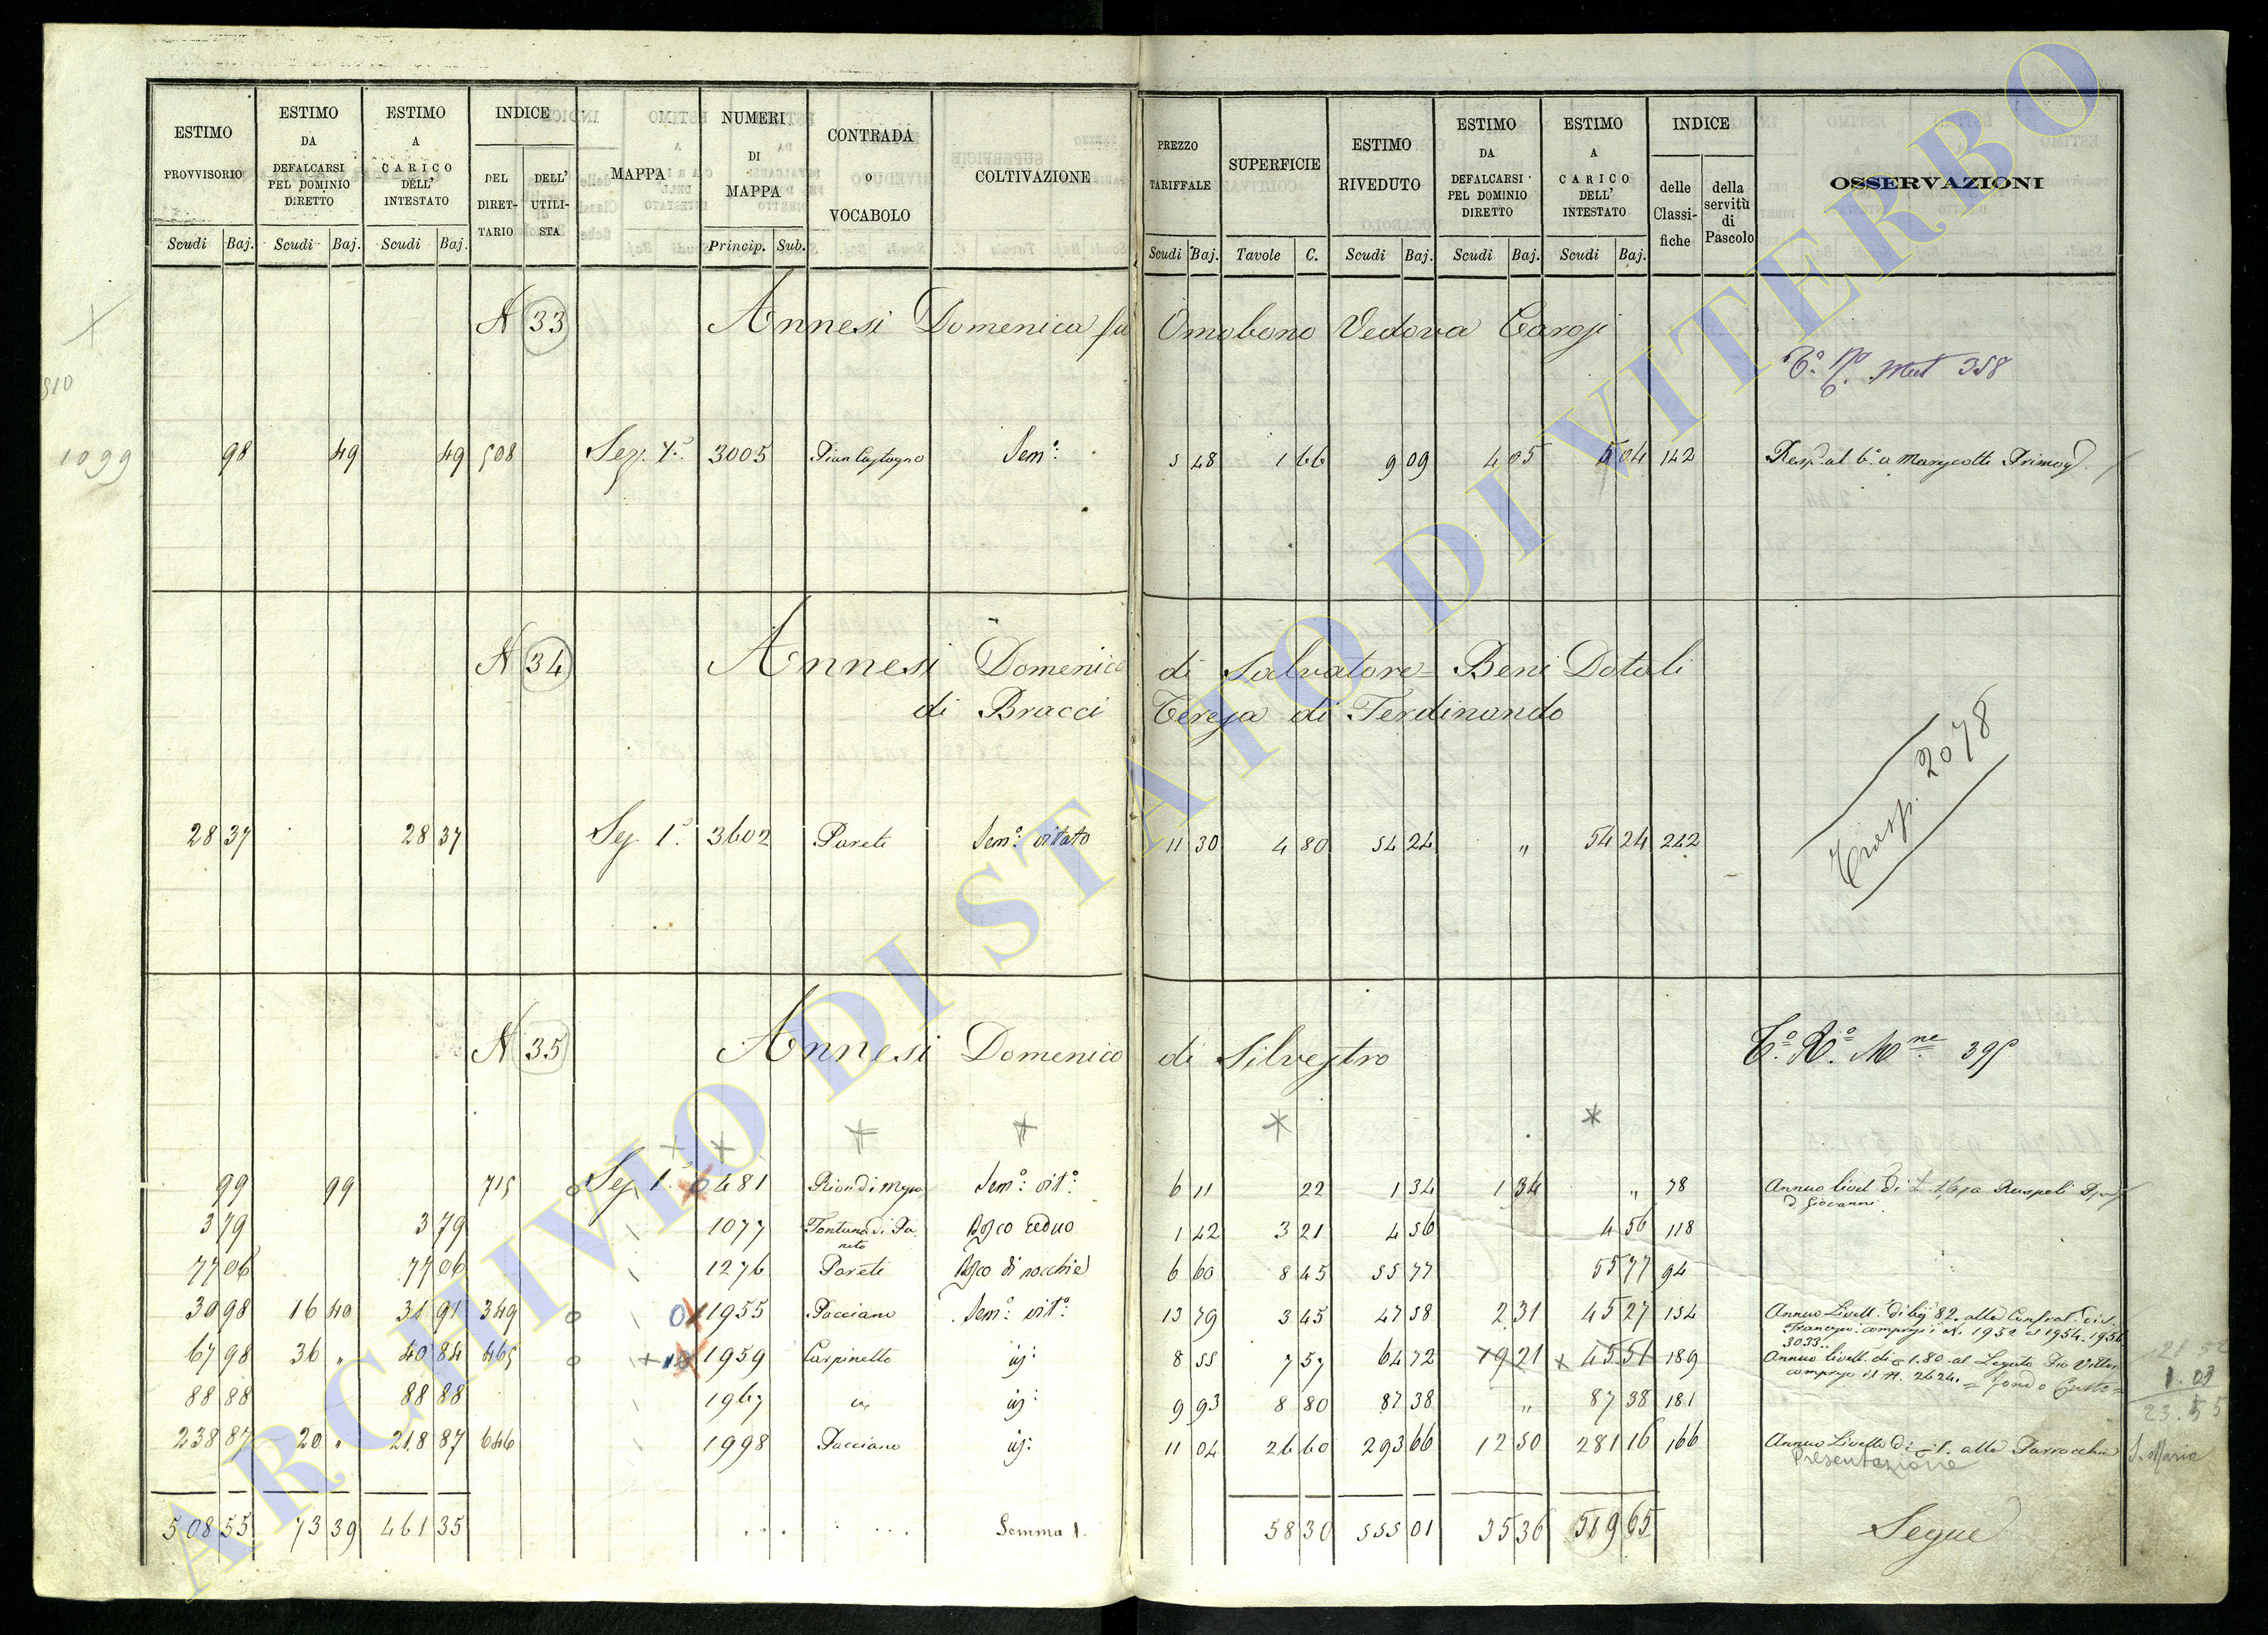 ESTIMO PROVVISORIO Scudi Baj.
ESTIMO DA DEFALCARSI PEL DOMINIO DIRETTO Scudi Baj.
ESTIMO A CARICO DELL' INTESTATO Scudi Baj.
INDICE DEL DIRET-TARIO DELL' UTILI-STA
MAPPA
NUMERI DI MAPPA Princip. Sub.
CONTRADA O VOCABOLO
COLTIVAZIONE
PREZZO TARIFFALE Scudi Baj.
SUPERFICIE Tavole C.
ESTIMO RIVEDUTO Scudi Baj.
ESTIMO DA DEFALCARSI PEL DOMINIO DIRETTO Scudi Baj.
ESTIMO A CARICO DELL' INTESTATO Scudi Baj.
INDICE delle Classi-fiche della servitù di Pascolo
OSSERVAZIONI
N 33 Annesi Domenica fu Omobono Vedova
Mut 358
1099
98 49 49 508 Sez. 3005 Sem:º 5 48 1 66 9 09 4 05 5 04 142 Primo
N 34 Annesi Domenico di Salvatore = Beni Dotali
di Bracci Teresa di Ferdinando
Trasp. 2078
28 37 28 37 Sez. 1ª 3602 Pareti Sem:º vitato 11 30 4 80 54 24 „ 54 24 212
N 35 Annesi Domenico di Silvestro
Cº Rº Mne 395
99 99 715 Sez. 1ª 481 Sem:º vitº: 6 11 22 1 34 1 34 „ 78 Annuo livel. di Ruspoli
di Giovanni
3 79 3 79 1077 Fontana di Pa-
neto Bosco ceduo 1 42 3 21 4 56 4 56 118
77 06 77 06 1276 Pareti Bosco di rocchie 6 60 8 45 55 77 55 77 94
30 98 16 40 31 91 349 1955 Pacciano Sem:º vitº: 13 79 3 45 47 58 2 31 45 27 154 Annuo Livell. 82. alla
1952 1954. 1956
3033.
67 98 36 „ 40 84 465 1959 Carpinetto id: 8 55 7 57 64 72 19 21 45 51 189 Annuo livell. di 1.80 al Legato Pio
compreso il N. 2624. = fondo
88 88 88 88 1967 id: 9 93 8 80 87 38 „ 87 38 181
1.03
23.55
238 87 20 „ 218 87 646 1998 Pacciano id: 11 04 26 60 293 66 12 50 281 16 166 Annuo Livello di 1. alla Parrocchia S. Maria
Presentazione
508 55 73 39 461 35 Somma 1. 58 30 555 01 35 36 519 65 Segue
ARCHIVIO DI STATO DI VITERBO